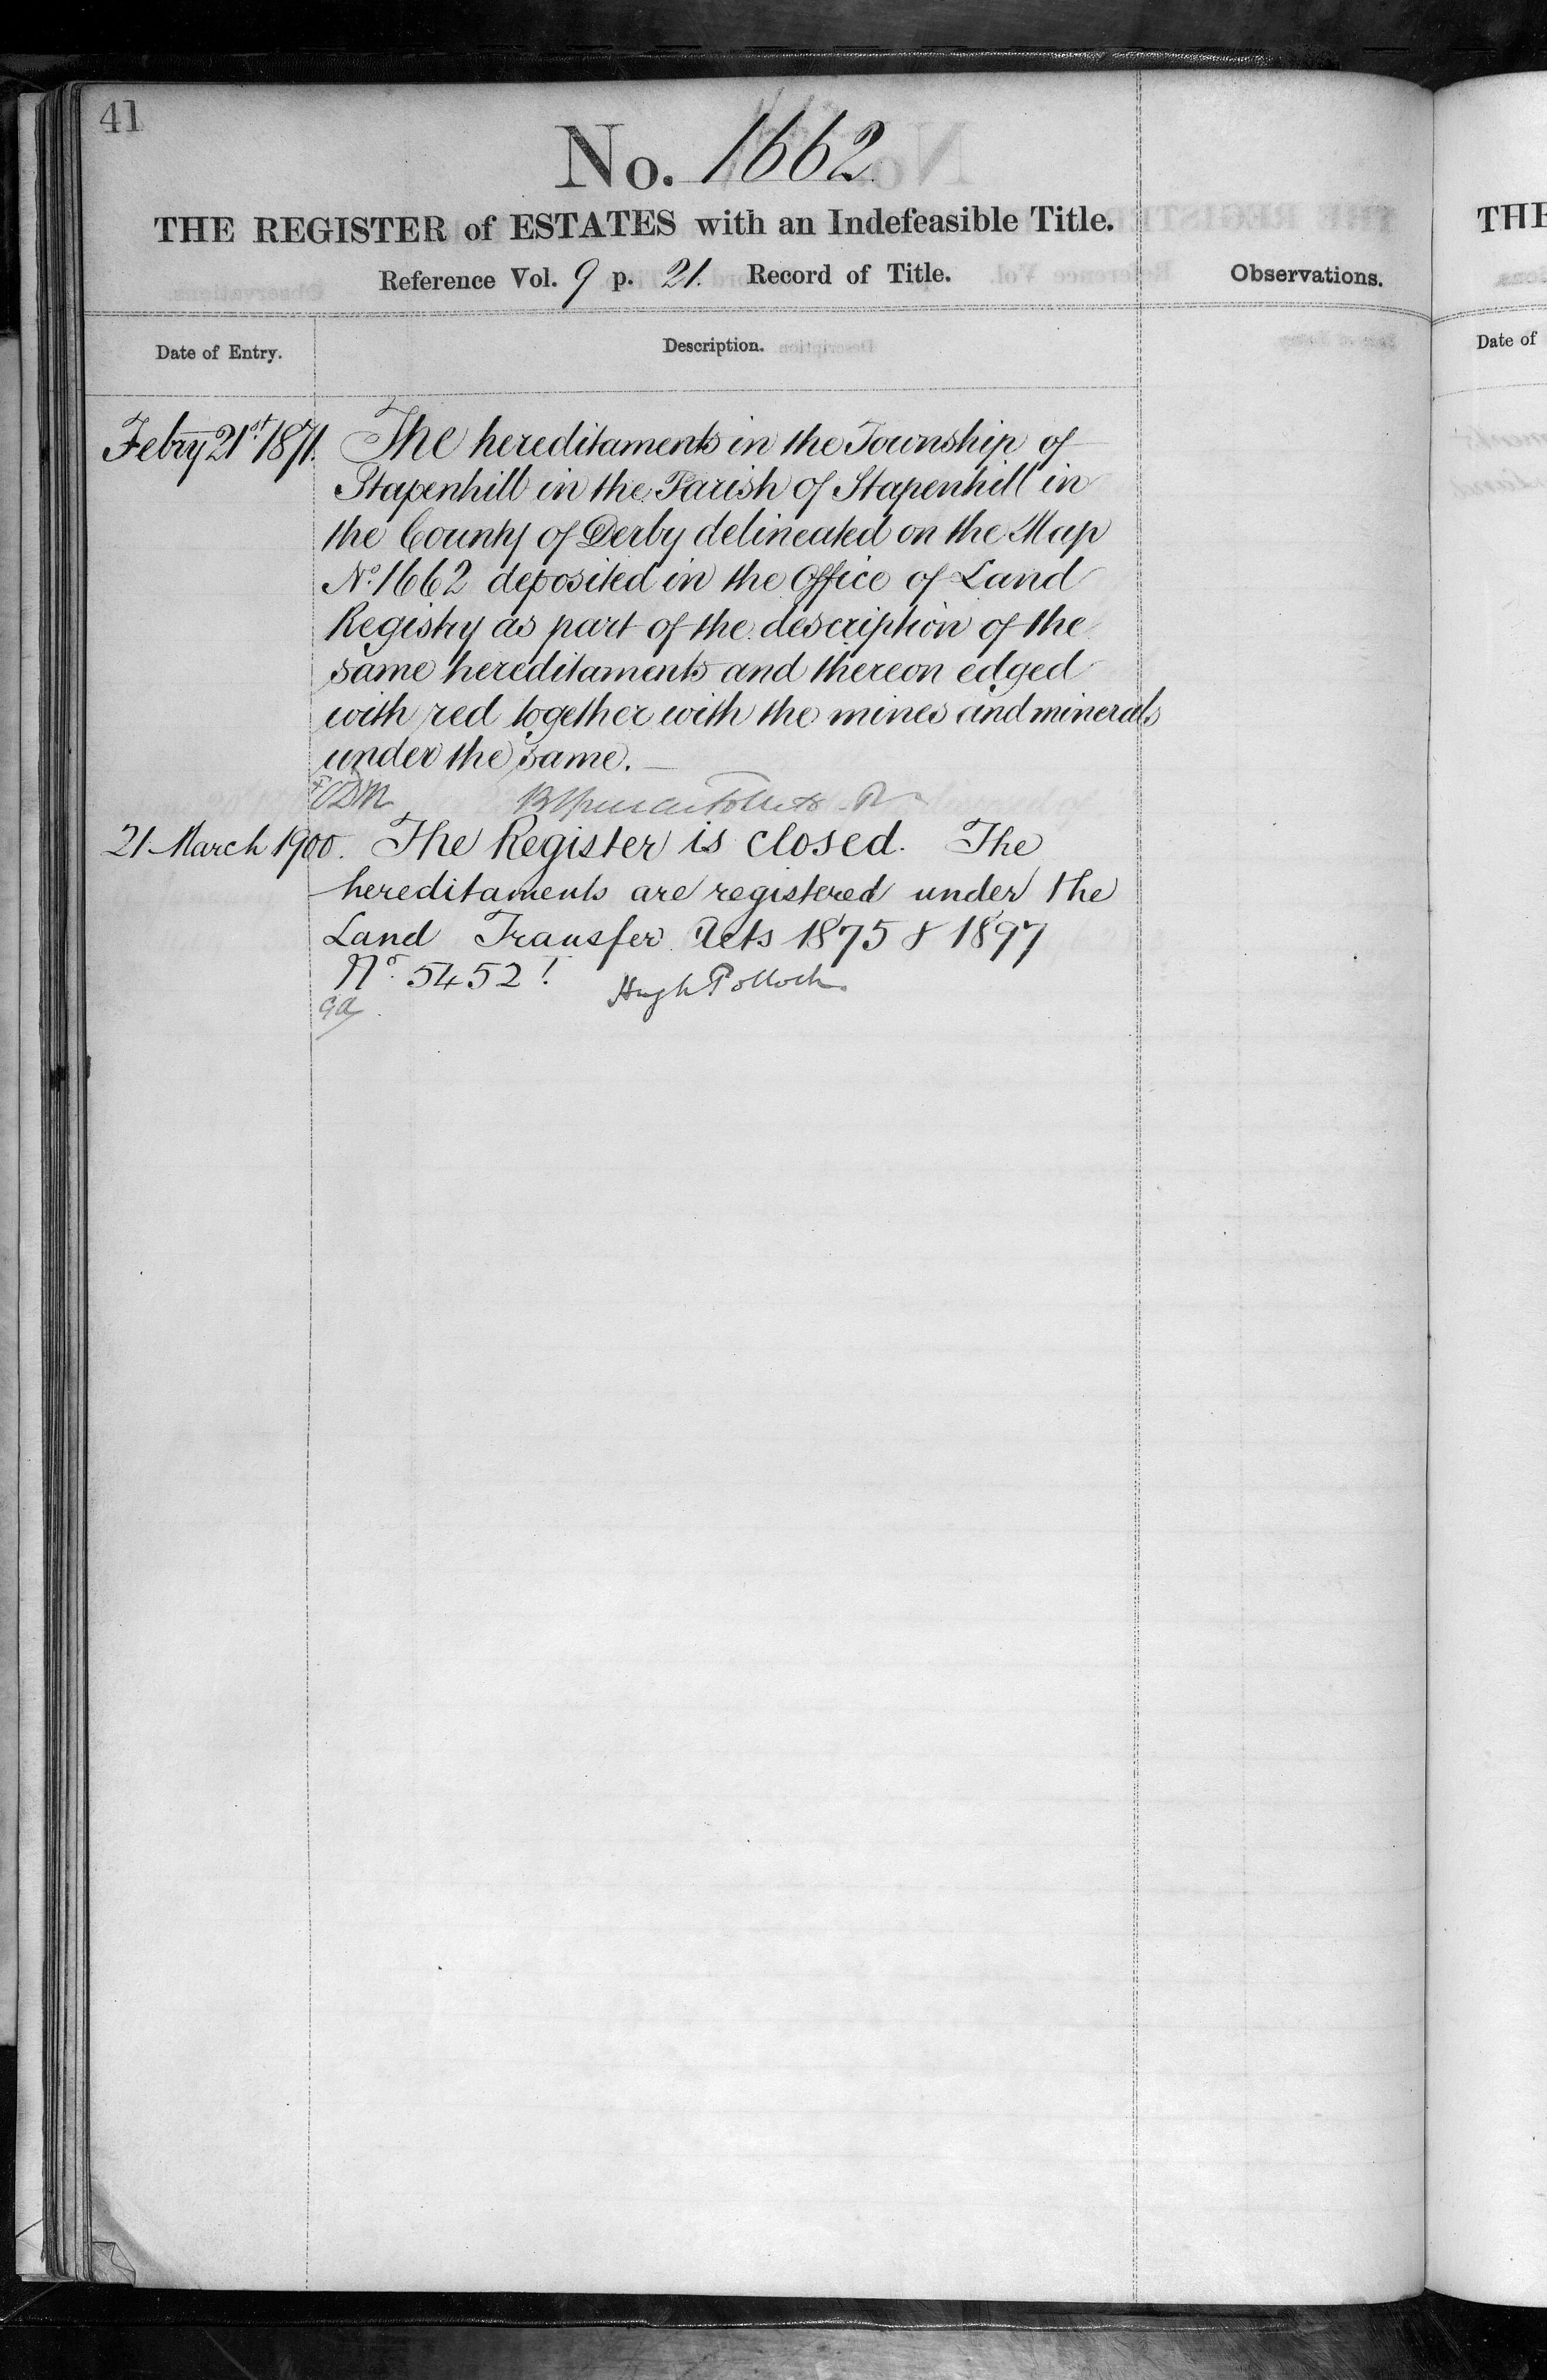 41
No. 1662
THE REGISTER of ESTATES with an Indefeasible Title.
Reference Vol. 9 p. 21. Record of Title.
Observations.
Date of Entry.
Description.
Febry 21st 1871. The hereditaments in the Township of
Stapenhill in the Parish of Stapenhill in
the County of Derby delineated on the Map
No. 1662 deposited in the Office of Land
Registry as part of the description of the
same hereditaments and thereon edged
with red together with the mines and minerals
under the same.
21 March 1900. The Register is closed. The
hereditaments are registered under the
Land Transfer Acts 1875 & 1897
No. 5452!
Hugh Pollock
THE
Date of